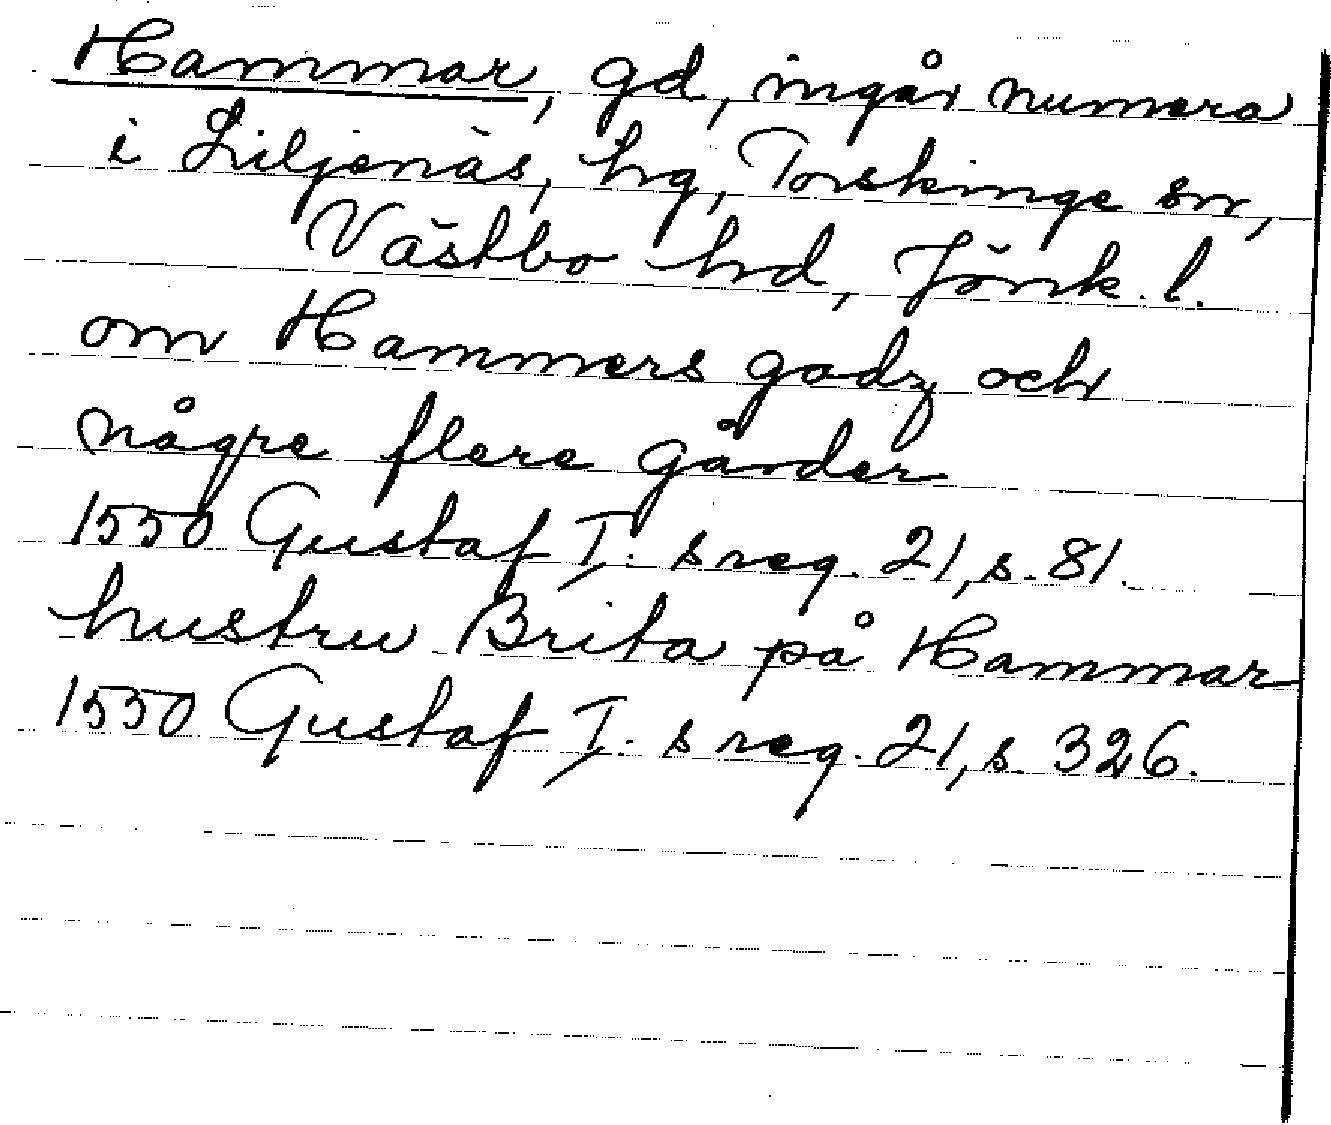 Hammar, gd, ingår numera
i Liljenäs, hg, Torskinge sn,
Västbo hd, Jönk. l.
om Hammers godz och
någre flere gårder
1550 Gustaf I. s reg. 21, s. 81.
hustru Brita på Hammar
1550 Gustaf I. s reg. 21, s. 326.